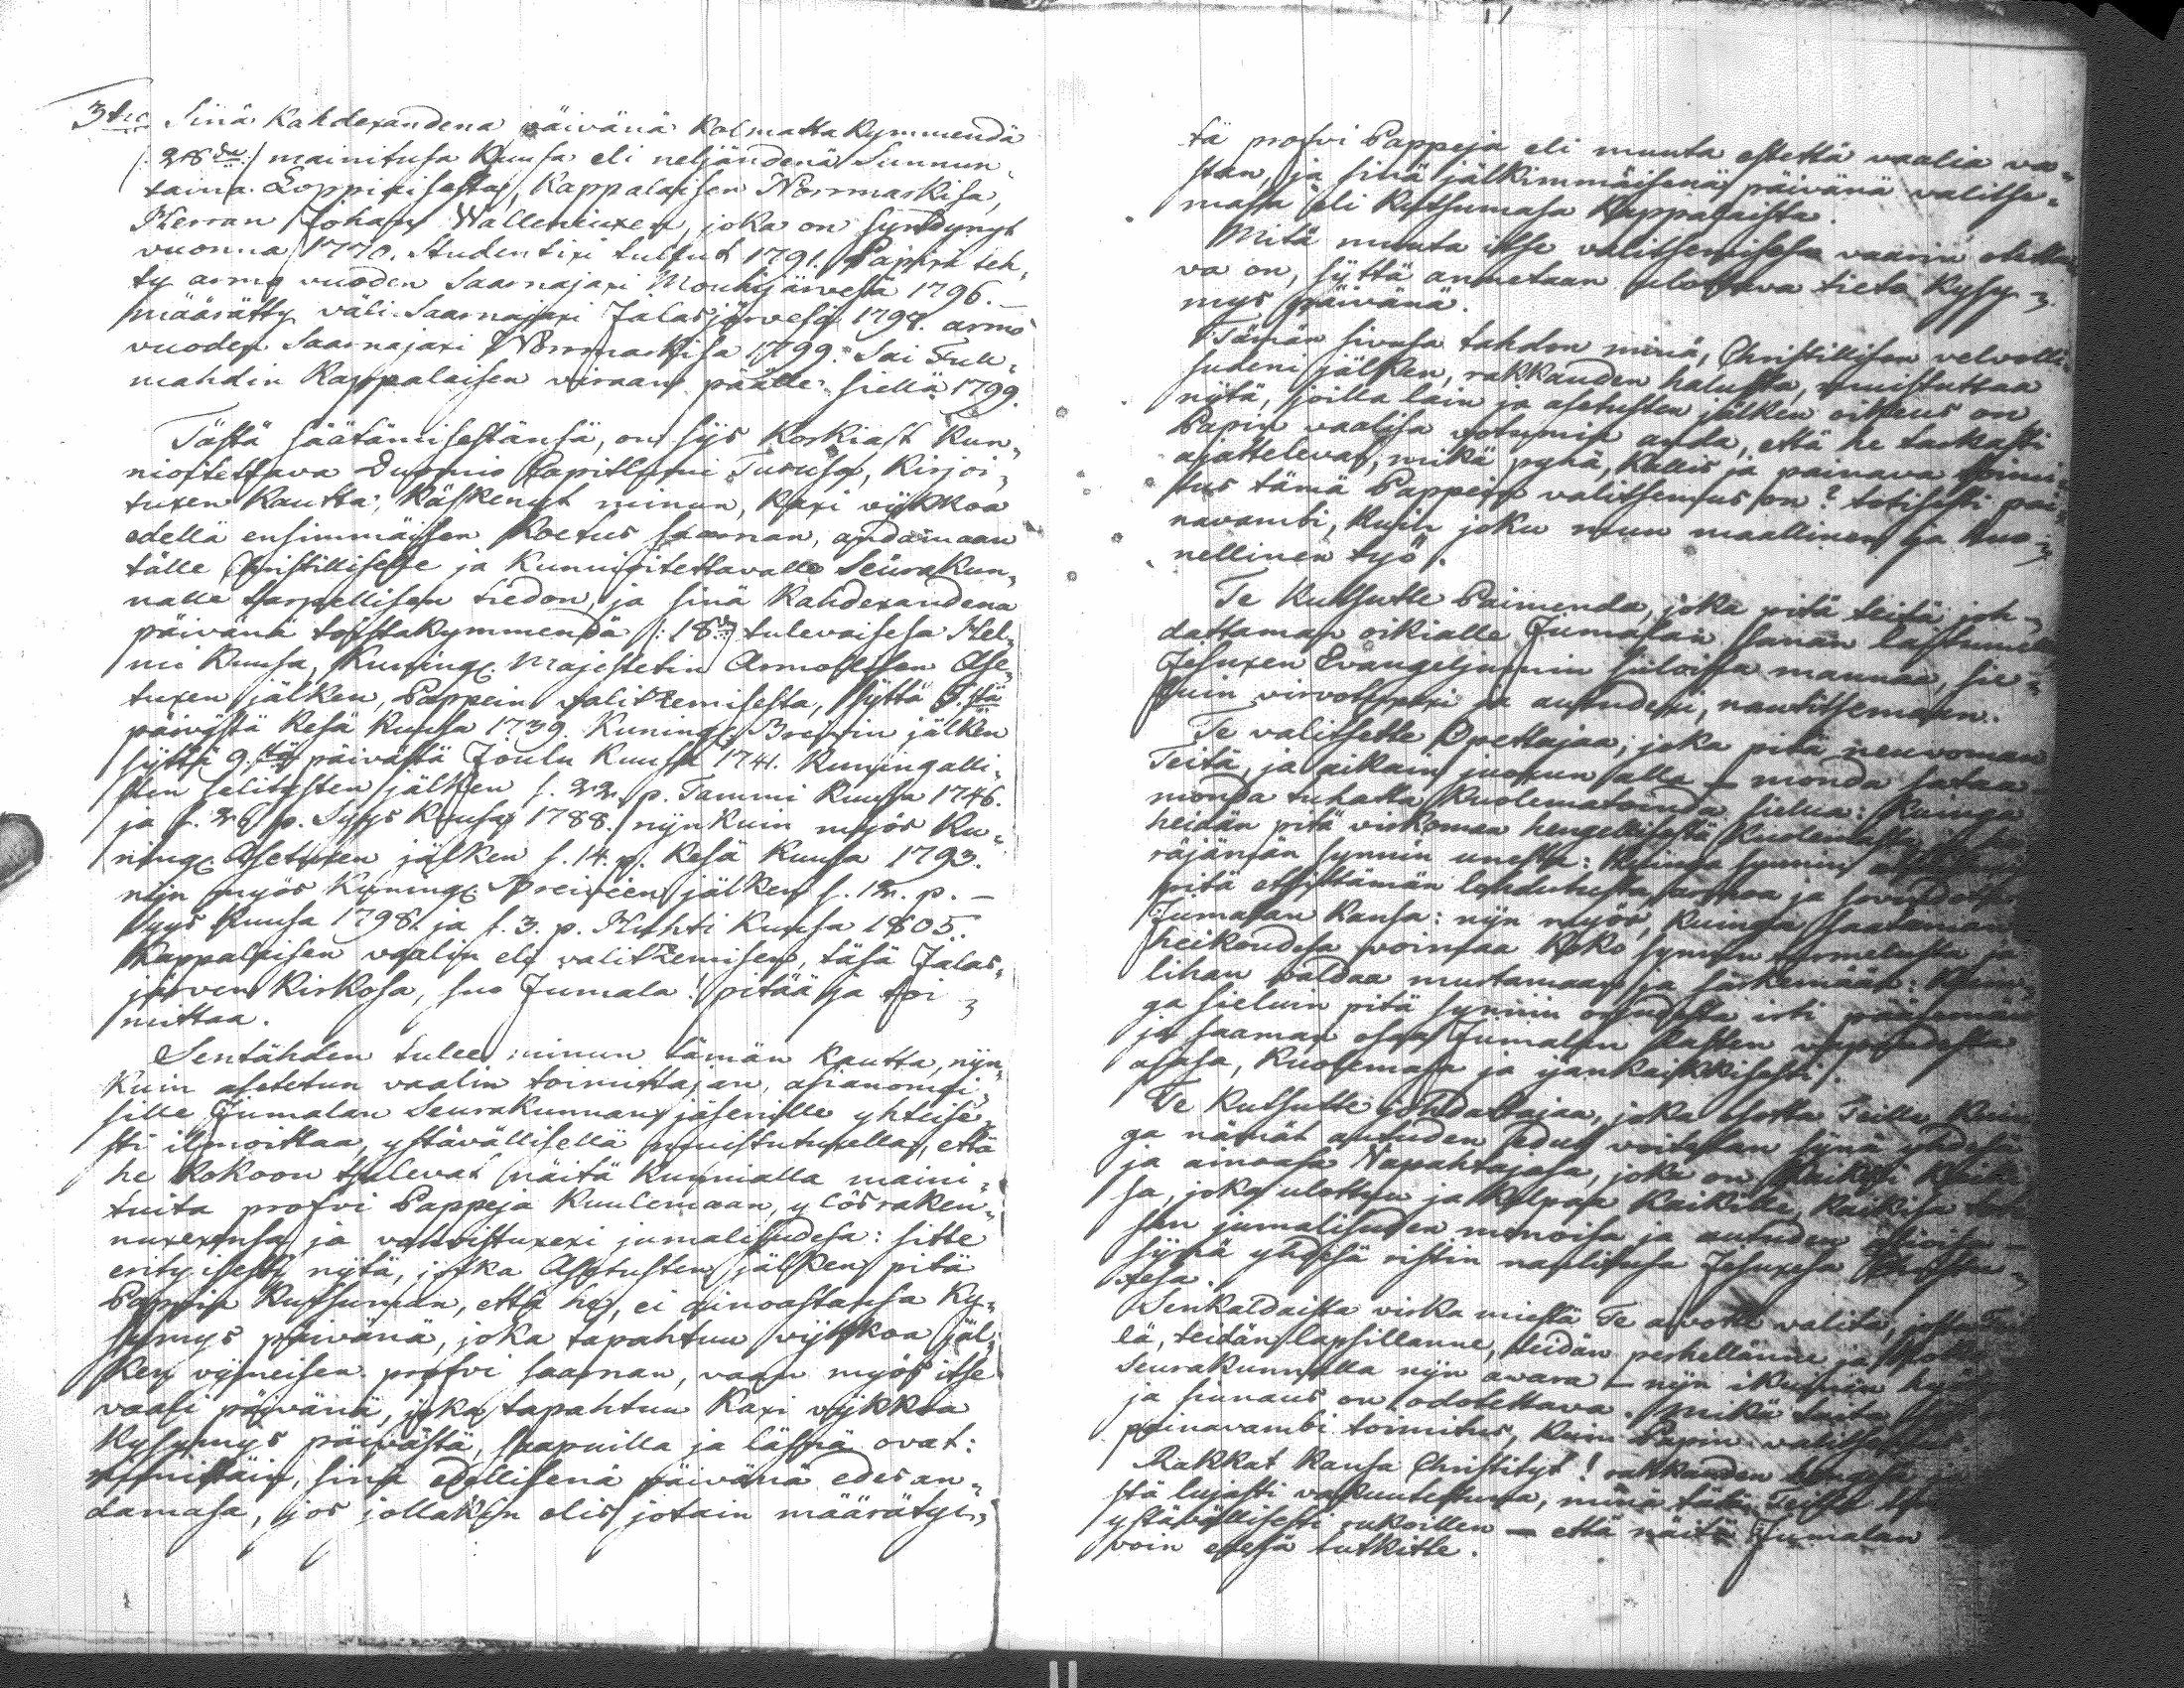 3tio Sinä Kahdexandena päivänä Kolmatta Kymmendä
/: 28da :/ mainitusa Kuusa eli neljändenä Sunnun,
taina Loppiaisesta, Kappalaisen Norrmarkisa,
Herran Johan Walleniuxen, joka on syndynyt
vuonna 1770. Studentixi tullut 1791. Papixi teh,
ty armo vuoden Saarnajaxi Mouhijärvesä 1796. –
määrätty väli Saarnajaxi Jalasjärvesä 1797. armo
vuoden Saarnajaxi Norrmarkisa 1799. Sai Full,
mahdin Kappalaisen viraan päälle siellä 1799.
Tästä säätämisestänsä, on sijs Korkiast Kun,
nioitettava Dummio Capitlumi Turusa, Kirjoi,
tuxen Kautta, Käskenyt minun, Kaxi vijkkoa
edellä ensimmäisen Koetus saarnan, andamaan
tälle Christilliselle ja Kunnioitettavalle Seurakun,
nalle tarpellisen tiedon, ja sinä Kahdexandena
päivänä toistakymmendä /: 18 tulevaisesa Hel,
mi Kuusa, Kuningl. Majestetin Armollisen Ase,
tuxen jälken, Pappein valitzemisesta, syttä
päivästä Kesä Kuusa 1739. Kuningl. Breivin jälken
syttä 9. päivästä Joulu Kuusa 1741. Kuningalli,
sten selitysten jälken s. 22. p. Tammi Kuusa 1746.
ja s. 26 p. Syys Kuusa 1788. nijnkuin myös Ku,
ningl. Asetuxen jälken s. 14. p. Kesä Kuusa 1793.
nijn myös Kuningl. Breivien jälken s. 12. p. –
Syys Kuusa 1798. ja s. 3. p. Huhti Kuusa 1805.
Kappalaisen vaalin eli valitzemisen, täsä Jalas,
järven Kirkosa, suo Jumala! pitää ja toi,
mittaa.
Sentähden tulee minun tämän Kautta, nijn,
Kuin asetetun vaalin toimittajan, asianomai,
sille Jumalan Seurakunnan jäsenille yhteise,
sti ilmoittaa, ystävällisellä muistutuxella, että
he Kokoon tulevat näitä Kunnialla maini,
tuita profvi Pappeja Kuulemaan, ylösraken,
nuxexensa ja vahvistuxexi jumalisudesa: sitte
erityisesti nytä, jotka Asetusten jälken pitä
Pappia Kutsuman, että he, ei ainoastansa Ky,
symys päivänä, joka tapahtuu vijkkoa jäl,
Ken vijmeisen profvi saarnan, vaan myös itse
vaali päivänä, joka tapahtuu Kaxi vijkkoa
Kysymys päivästä, saapuilla ja läsnä ovat:
nimittäin, sinä edellisenä päivänä edesan,
damasa, jos jollakin olis jotain määrätyi,
tä profvi Pappeja eli muuta estettä vaalia va,
stan, ja sinä jälkimmäisenä päivänä valitse,
masa eli Kutsumasa Kappalaista.
Mitä muuta itse valitsemisesa vaarin otetta
va on, syttä annetaan ulottuva tieto Kysy,
mys päivänä.
Tämän sivusa tahdon minä, Christillisen velvolli,
sudeni jälken, rakkauden halusta, muistuttaa
nytä, joilla lain ja asetusten jälken oikeus on
Papin vaalisa votumin anda, että he tarkasti
ajattelevat, mikä pyhä, kallis ja painava toimi,
tus tämä Pappein valitsemus on? totisesti pai,
navambi, Kuin joku muu maallinen ja huo,
nellinen työ.
Te Kutsutte Paimenda, joka pitä teitä joh,
dattaman oikialle Jumalan sanan laitumelle
Jesuxen Evangeljumin suloista mannaa, sie,
luin virvotuxexi ja autudexi, nautitsemaan.
Te valitsette Opettajaa, joka pitä neuvoman
Teitä, ja aikain juoxun alla – monda sataa
monda tuhatta Kuolematoinda sielua: Kuinga
heidän pitä virkoman hengellisestä Kuolemasta ja he
räjämän synnin unesta: Kuinga synnin
pitä etsittämän lohdutusta, armoa ja sovindoa
Jumalan Kansa: nijn myös, Kuinga saataman
heikoudesa voimaa Koko synnin turmelusta ja
lihan valdaa murtamaan ja särkemään: Kuin,
ga sieluin pitä synnin orjudesta irti pääsemän
ja saaman osaa Jumalan lasten vapaudesta
ajasa, Kuolemasa ja ijankaikkisesti.
Te Kutsutte johdattajaa, joka osotta Teille, Kuin
ga nämät autuden edut voitetan synä yhdesä
ja ainoasa Vapahtajasa, joka on Kaikki Kaiki
sa, joka ulottuu ja Kelpaa Kaikille, Kaikisa
sen jumalisuden menoisa ja autuden
synä yhdesä ristin naulitusa Jesuxesa Christu,
xesa.
Senkaldaista virka miestä Te aivotte valita, josta Teil
lä, teidän lapsillanne, teidän perhellänne ja
Seurakunnalla nijn avara – nijn ikuinen hyöty
ja siunaus on odotettava. Mikä taita
painavambi toimitus, Kuin Papin valitsemus.
Rakkat Kansa Christityt! rakkauden hengesä
stä lujasti vakuutettuna, minä tätä Teille
ystävällisesti rukoillen – että näitä Jumalan
voin edesä tutkitte.